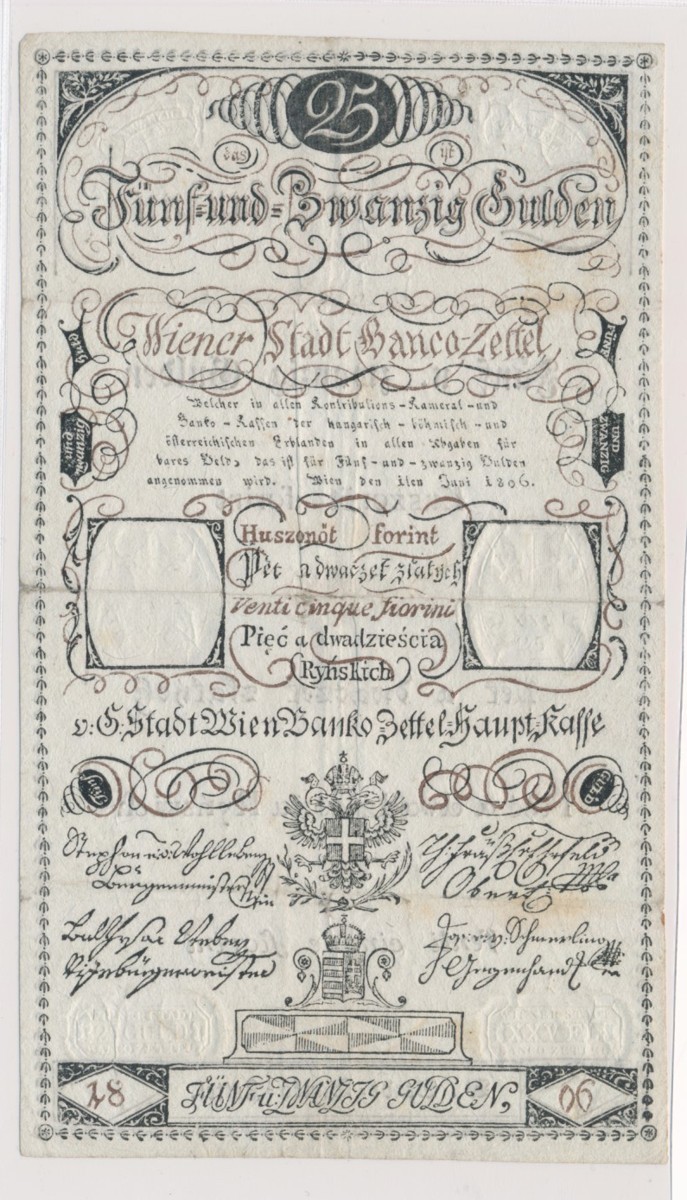 25
das ist
Fünf=und=Zwanzig Gulden
Wiener Stadt Banco-Zettel
FÜNF
UND ZWANZIG
Welcher in allen Kontributions-Kameral-und
Banko-Kassen der hungarisch-böhmisch-und
österreichischen Erblanden in allen Abgaben für
bares Geld, das ist für Fünf-und-zwanzig Gulden
angenommen wird. Wien den 1ten Juni 1806.
Huszonöt forint
Pět a dwaczet zlatych
Venti cinque fiorini
Pięć a dwadzieścia
Ryńskich
v: G: Stadt Wien Banko Zettel=Haupt=Kasse
Fünf
GULD
Stephan
Burgermeister
Oberst
v: Schmerling
Gegenhandl
18 FÜNF u: ZWANZIG GULDEN, 06